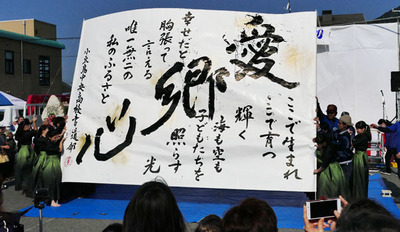 愛郷心
ここで生まれ
ここで育つ
輝く
海も空も
子どもたちを
照らす
光
幸せだと
胸張って
言える
唯一無二の
私のふるさと
小豆島中央高校書道部